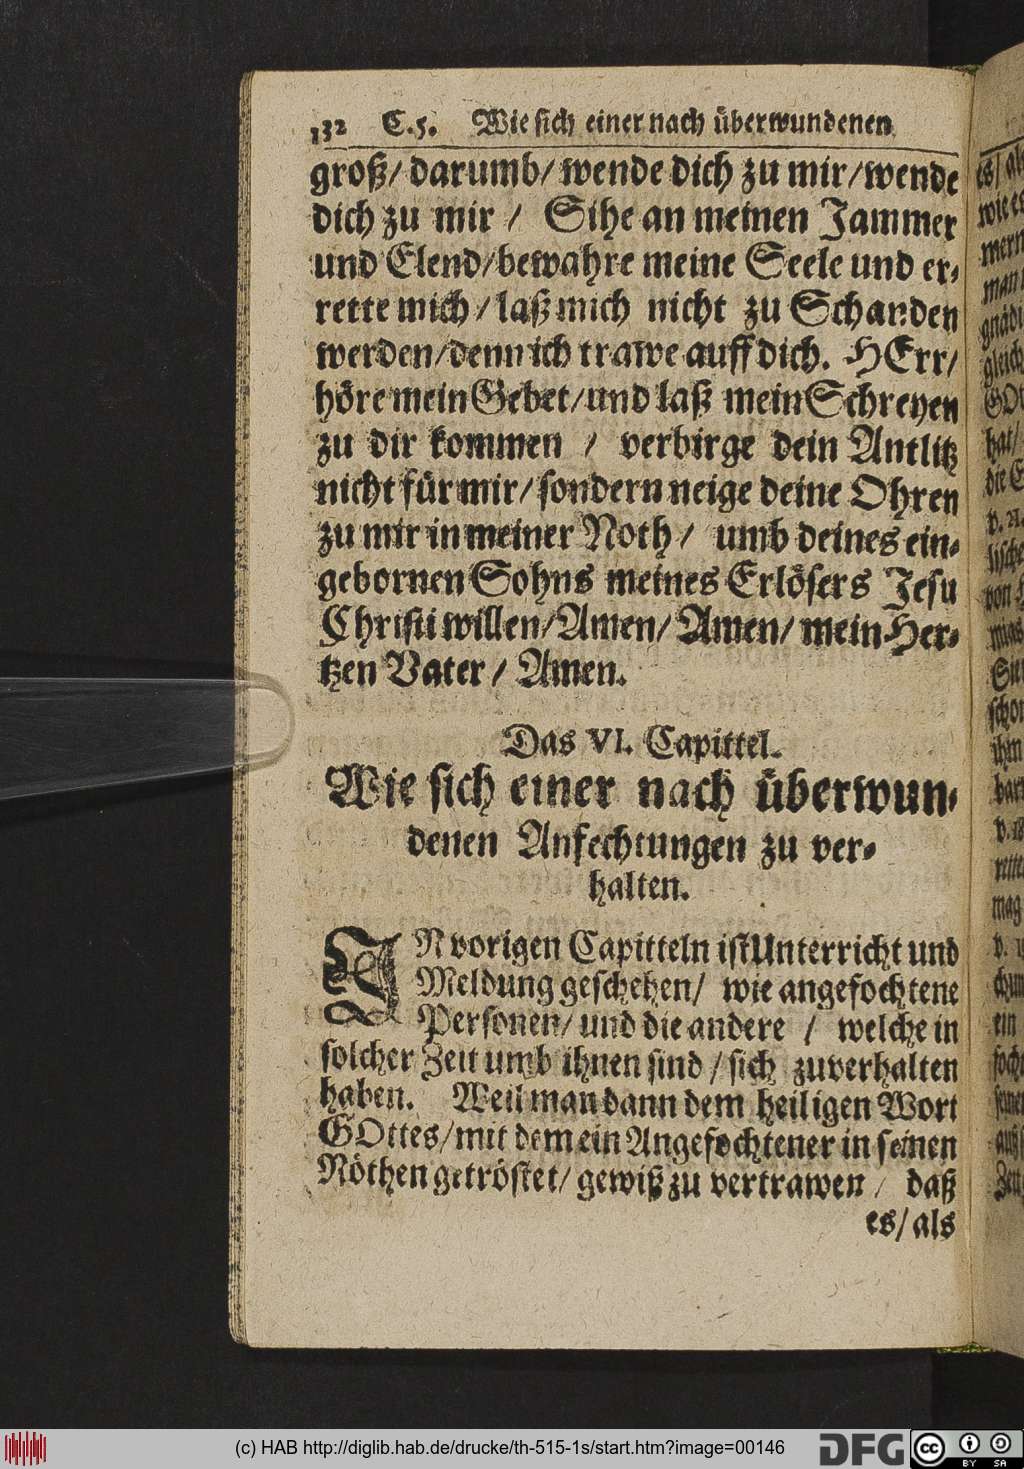 132 C.5. Wie sich einer nach überwundenen
groß/ darumb/ wende dich zu mir/ wende
dich zu mir / Sihe an meinen Jammer
und Elend/ bewahre meine Seele und er-
rette mich / laß mich nicht zu Schanden
werden/ denn ich trawe auff dich. HErr/
höre mein Gebet/ und laß mein Schreyen
zu dir kommen / verbirge dein Antlitz
nicht für mir/ sondern neige deine Ohren
zu mir in meiner Noth / umb deines ein-
gebornen Sohns meines Erlösers Jesu
Christi willen/ Amen/ Amen/ mein Her-
tzen Vater / Amen.
Das VI. Capittel.
Wie sich einer nach überwun-
denen Anfechtungen zu ver-
halten.
IN vorigen Capitteln ist Unterricht und
Meldung geschehen/ wie angefochtene
Personen/ und die andere / welche in
solcher Zeit umb ihnen sind / sich zuverhalten
haben. Weil man dann dem heiligen Wort
GOttes/ mit dem ein Angefochtener in seinen
Nöthen getröstet/ gewiß zu vertrawen / daß
es/ als
(c) HAB http://diglib.hab.de/drucke/th-515-1s/start.htm?image=00146
DFG
cc BY SA